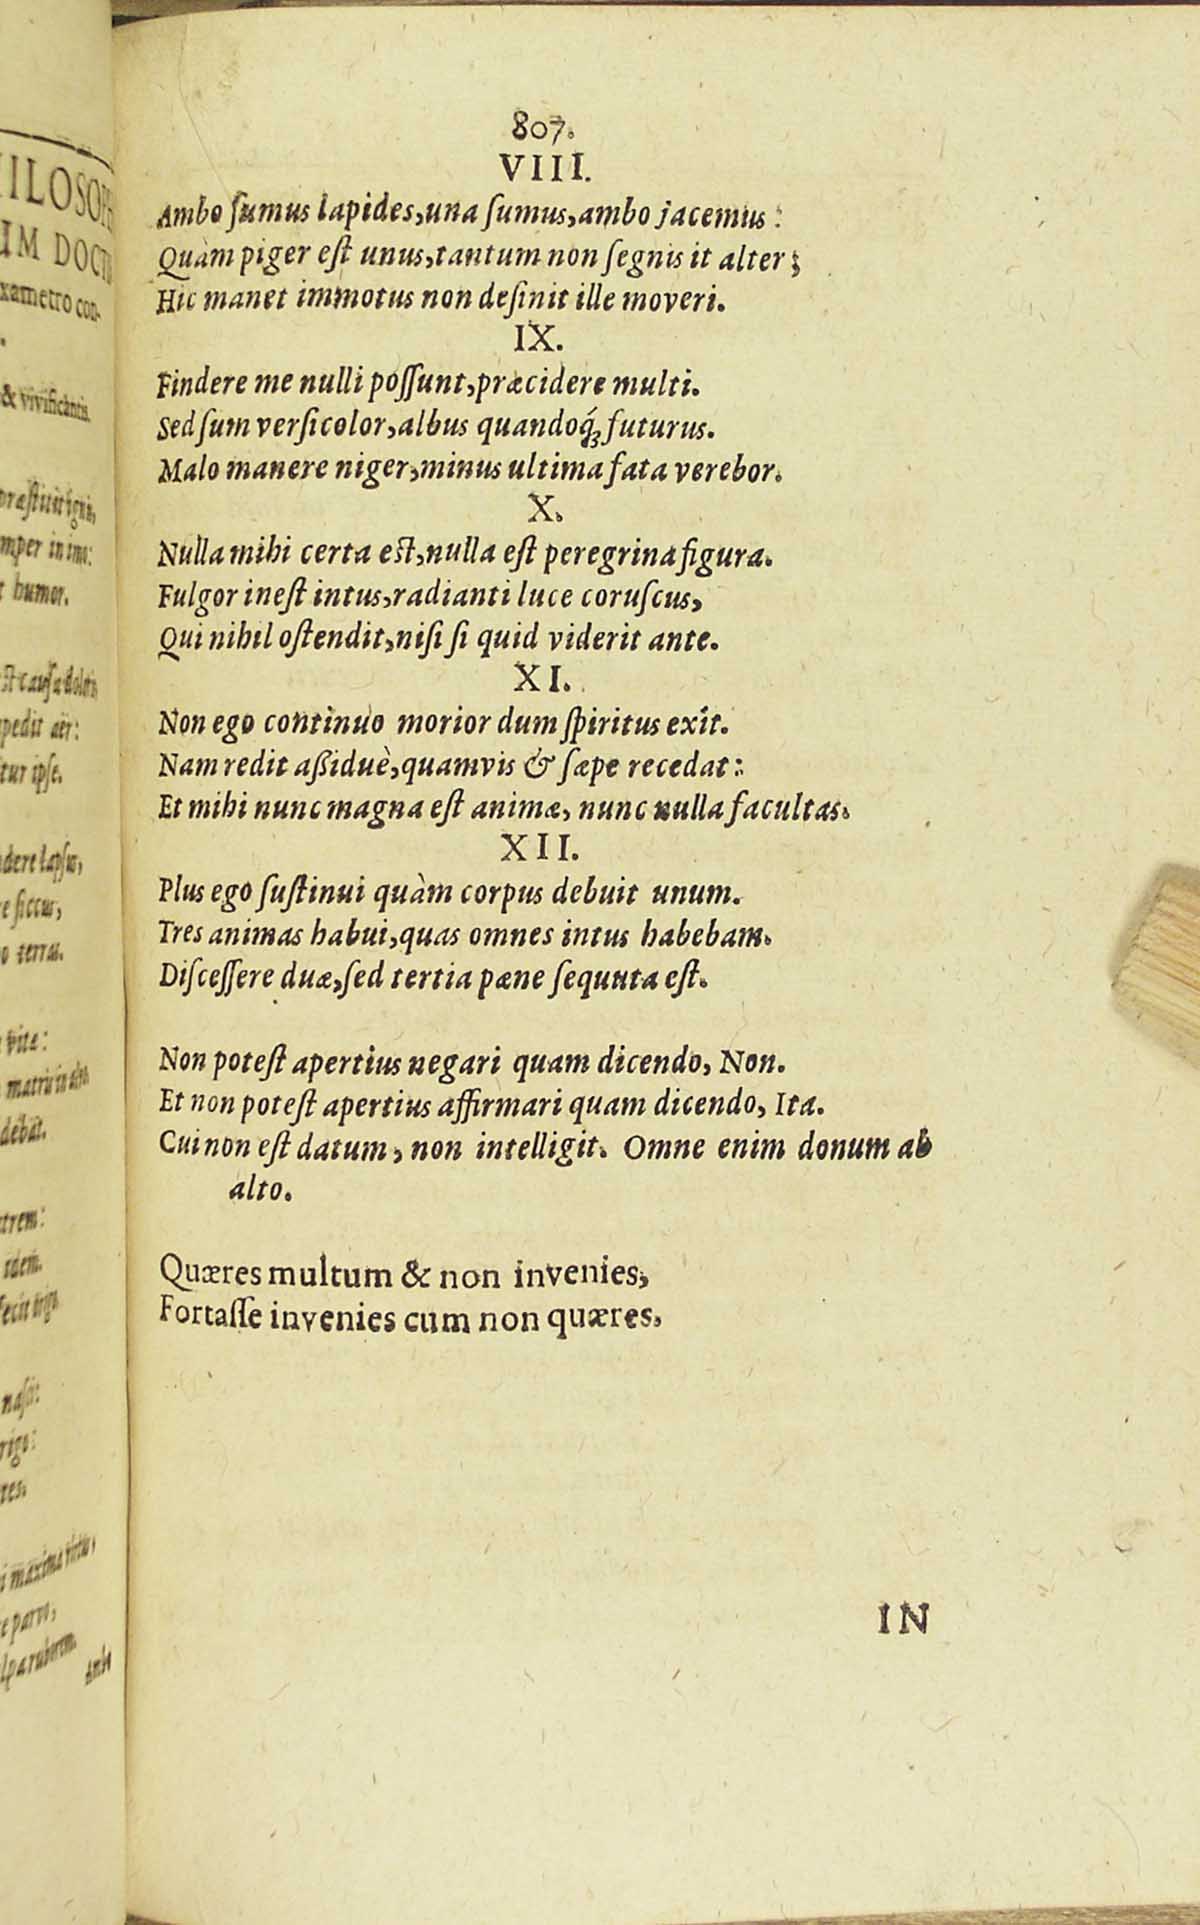 807.
VIII.
Ambo ſumus lapides, una ſumus, ambo jacemus:
Quàm piger eſt unus, tantum non ſegnis it alter;
Hic manet immotus non deſinit ille moveri.
IX.
Findere me nulli poſſunt, præcidere multi.
Sed ſum verſicolor, albus quandoq́ꝫ futurus.
Malo manere niger, minus ultima fata verebor.
X.
Nulla mihi certa eſt, nulla eſt peregrina figura.
Fulgor ineſt intus, radianti luce coruſcus,
Qui nihil oſtendit, niſi ſi quid viderit ante.
XI.
Non ego continuo morior dum ſpiritus exît.
Nam redit aßiduè, quamvis & ſæpe recedat:
Et mihi nunc magna eſt animæ, nunc nulla facultas.
XII.
Plus ego ſuſtinui quàm corpus debuit unum.
Tres animas habui, quas omnes intus habebam.
Diſceſſere duæ, ſed tertia pæne ſequuta eſt.
Non poteſt apertius negari quam dicendo, Non.
Et non poteſt apertius affirmari quam dicendo, Ita.
Cui non eſt datum, non intelligit. Omne enim donum ab
alto.
Quæres multum & non invenies,
Fortaſſe invenies cum non quæres.
IN